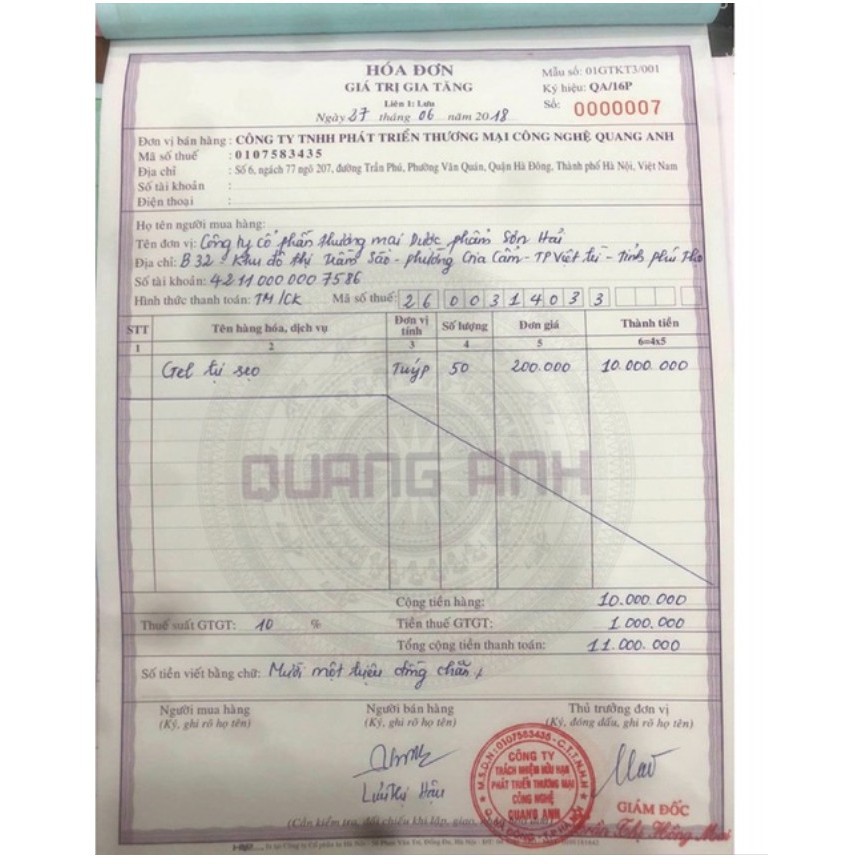 HÓA ĐƠN
GIÁ TRỊ GIA TĂNG
Liên 1: Lưu
Ngày 27 tháng 06 năm 2018
Mẫu số: 01GTKT3/001
Ký hiệu: QA/16P
Số: 0000007
Đơn vị bán hàng : CÔNG TY TNHH PHÁT TRIỂN THƯƠNG MẠI CÔNG NGHỆ QUANG ANH
Mã số thuế : 0107583435
Địa chỉ : Số 6, ngách 77 ngõ 207, đường Trần Phú, Phường Văn Quán, Quận Hà Đông, Thành phố Hà Nội, Việt Nam
Số tài khoản :
Điện thoại :
Họ tên người mua hàng:
Tên đơn vị: Công ty cổ phần thương mại Dược phẩm Sơn Hải
Địa chỉ: B32 - Khu đô thị Trầm Sào - phường Gia Cẩm - TP Việt trì - Tỉnh phú Thọ
Số tài khoản: 4211000007586
Hình thức thanh toán: TM/CK Mã số thuế: 2600314033
STT Tên hàng hóa, dịch vụ Đơn vị tính Số lượng Đơn giá Thành tiền
1 2 3 4 5 6=4x5
Gel trị sẹo Tuýp 50 200.000 10.000.000
QUANG ANH
Cộng tiền hàng: 10.000.000
Thuế suất GTGT: 10 % Tiền thuế GTGT: 1.000.000
Tổng cộng tiền thanh toán: 11.000.000
Số tiền viết bằng chữ: Mười một triệu đồng chẵn ./
Người mua hàng Người bán hàng Thủ trưởng đơn vị
(Ký, ghi rõ họ tên) (Ký, ghi rõ họ tên) (Ký, đóng dấu, ghi rõ họ tên)
M.S.D.N: 0107583435 - C.T.T.N.H.H
CÔNG TY
TRÁCH NHIỆM HỮU HẠN
PHÁT TRIỂN THƯƠNG MẠI
CÔNG NGHỆ
QUANG ANH
Q. HÀ ĐÔNG - T.P HÀ
Lưu Thị Hậu
GIÁM ĐỐC
Trần Thị Hồng Mai
(Cần kiểm tra, đối chiếu khi lập, giao,